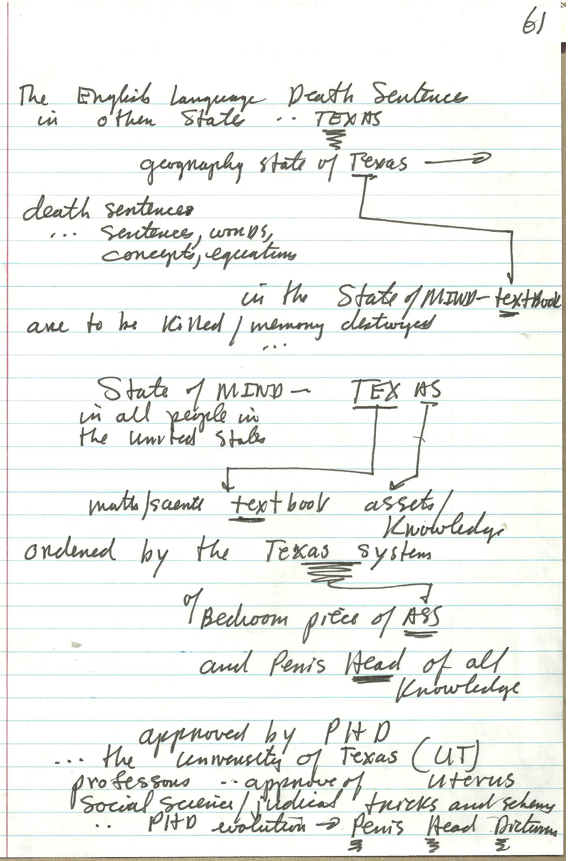 61
The English Language Death Sentences
in other States .. TEXAS
geography state of Texas →
death sentences
... sentences, words,
concepts, equations
in the State of MIND - textbook
are to be killed / memory destroyed
...
State of MIND - TEX AS
in all people in
the United States
math/scients textbook assets/
Knowledge
ordered by the Texas system
of Bedroom piece of ASS
and Penis Head of all
Knowledge
approved by PHD
... the University of Texas (UT)
professors .. approve of uterus
Social Science/judical tricks and schems
.. PHD evolution → Penis Head